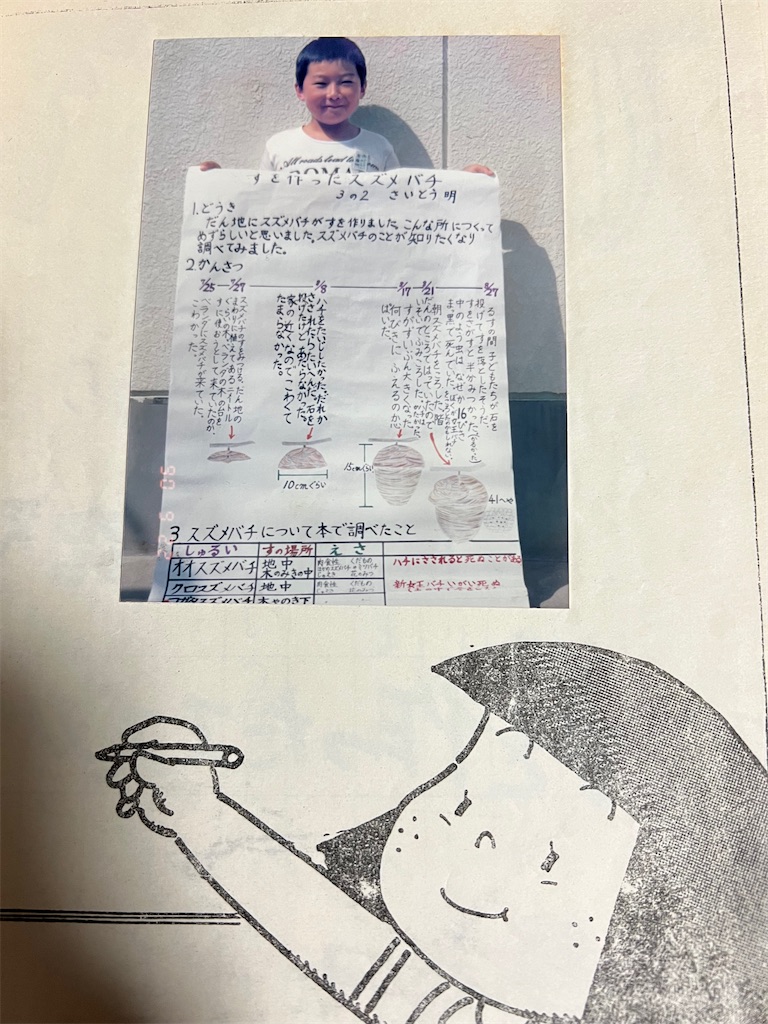 All roads lead to
ROMA
すを作ったスズメバチ
3の2 さいとう 明
1.どうき
だん地にスズメバチがすを作りました。こんな所につくって
めずらしいと思いました。スズメバチのことが知りたくなり
調べてみました。
2.かんさつ
7/25 7/27 8/8 8/17 8/21 8/27
スズメバチのすをみつける。だん地の
まわりに植えてある2メートル
ぐらいの木。ベランダの木の台を
すに使おうとして、来ていたのか、
ベランダにスズメバチが来ていた。
こわかった。
ハチをたいじしたかった。だれか
さされたらたいへんだ。石を
投げたけど あたらなかった。
家の近くなのでこわくて
たまらなかった。
すがずいぶん大きくなった。
何びきに ふえるのか心
ぱいだ。
朝スズメバチをころした。階
だんのところではっていたので
いそいでふみころした。
るすの間 子どもたちが石を
投げて すを落としたそうだ。
すをさがすと 半分みつかった。
中のよう虫は、なぜか 16ぴき
ま、黒で 死んでいた。
10cmぐらい
15cmぐらい
41へや
3 スズメバチについて本で調べたこと
しゅるい すの場所 えさ
オオスズメバチ 地中 木のみきの中 肉食性 くだもの ハチにさされると死ぬことがある
クロスズメバチ 地中 肉食性 くだもの 新女王バチいがい死ぬ